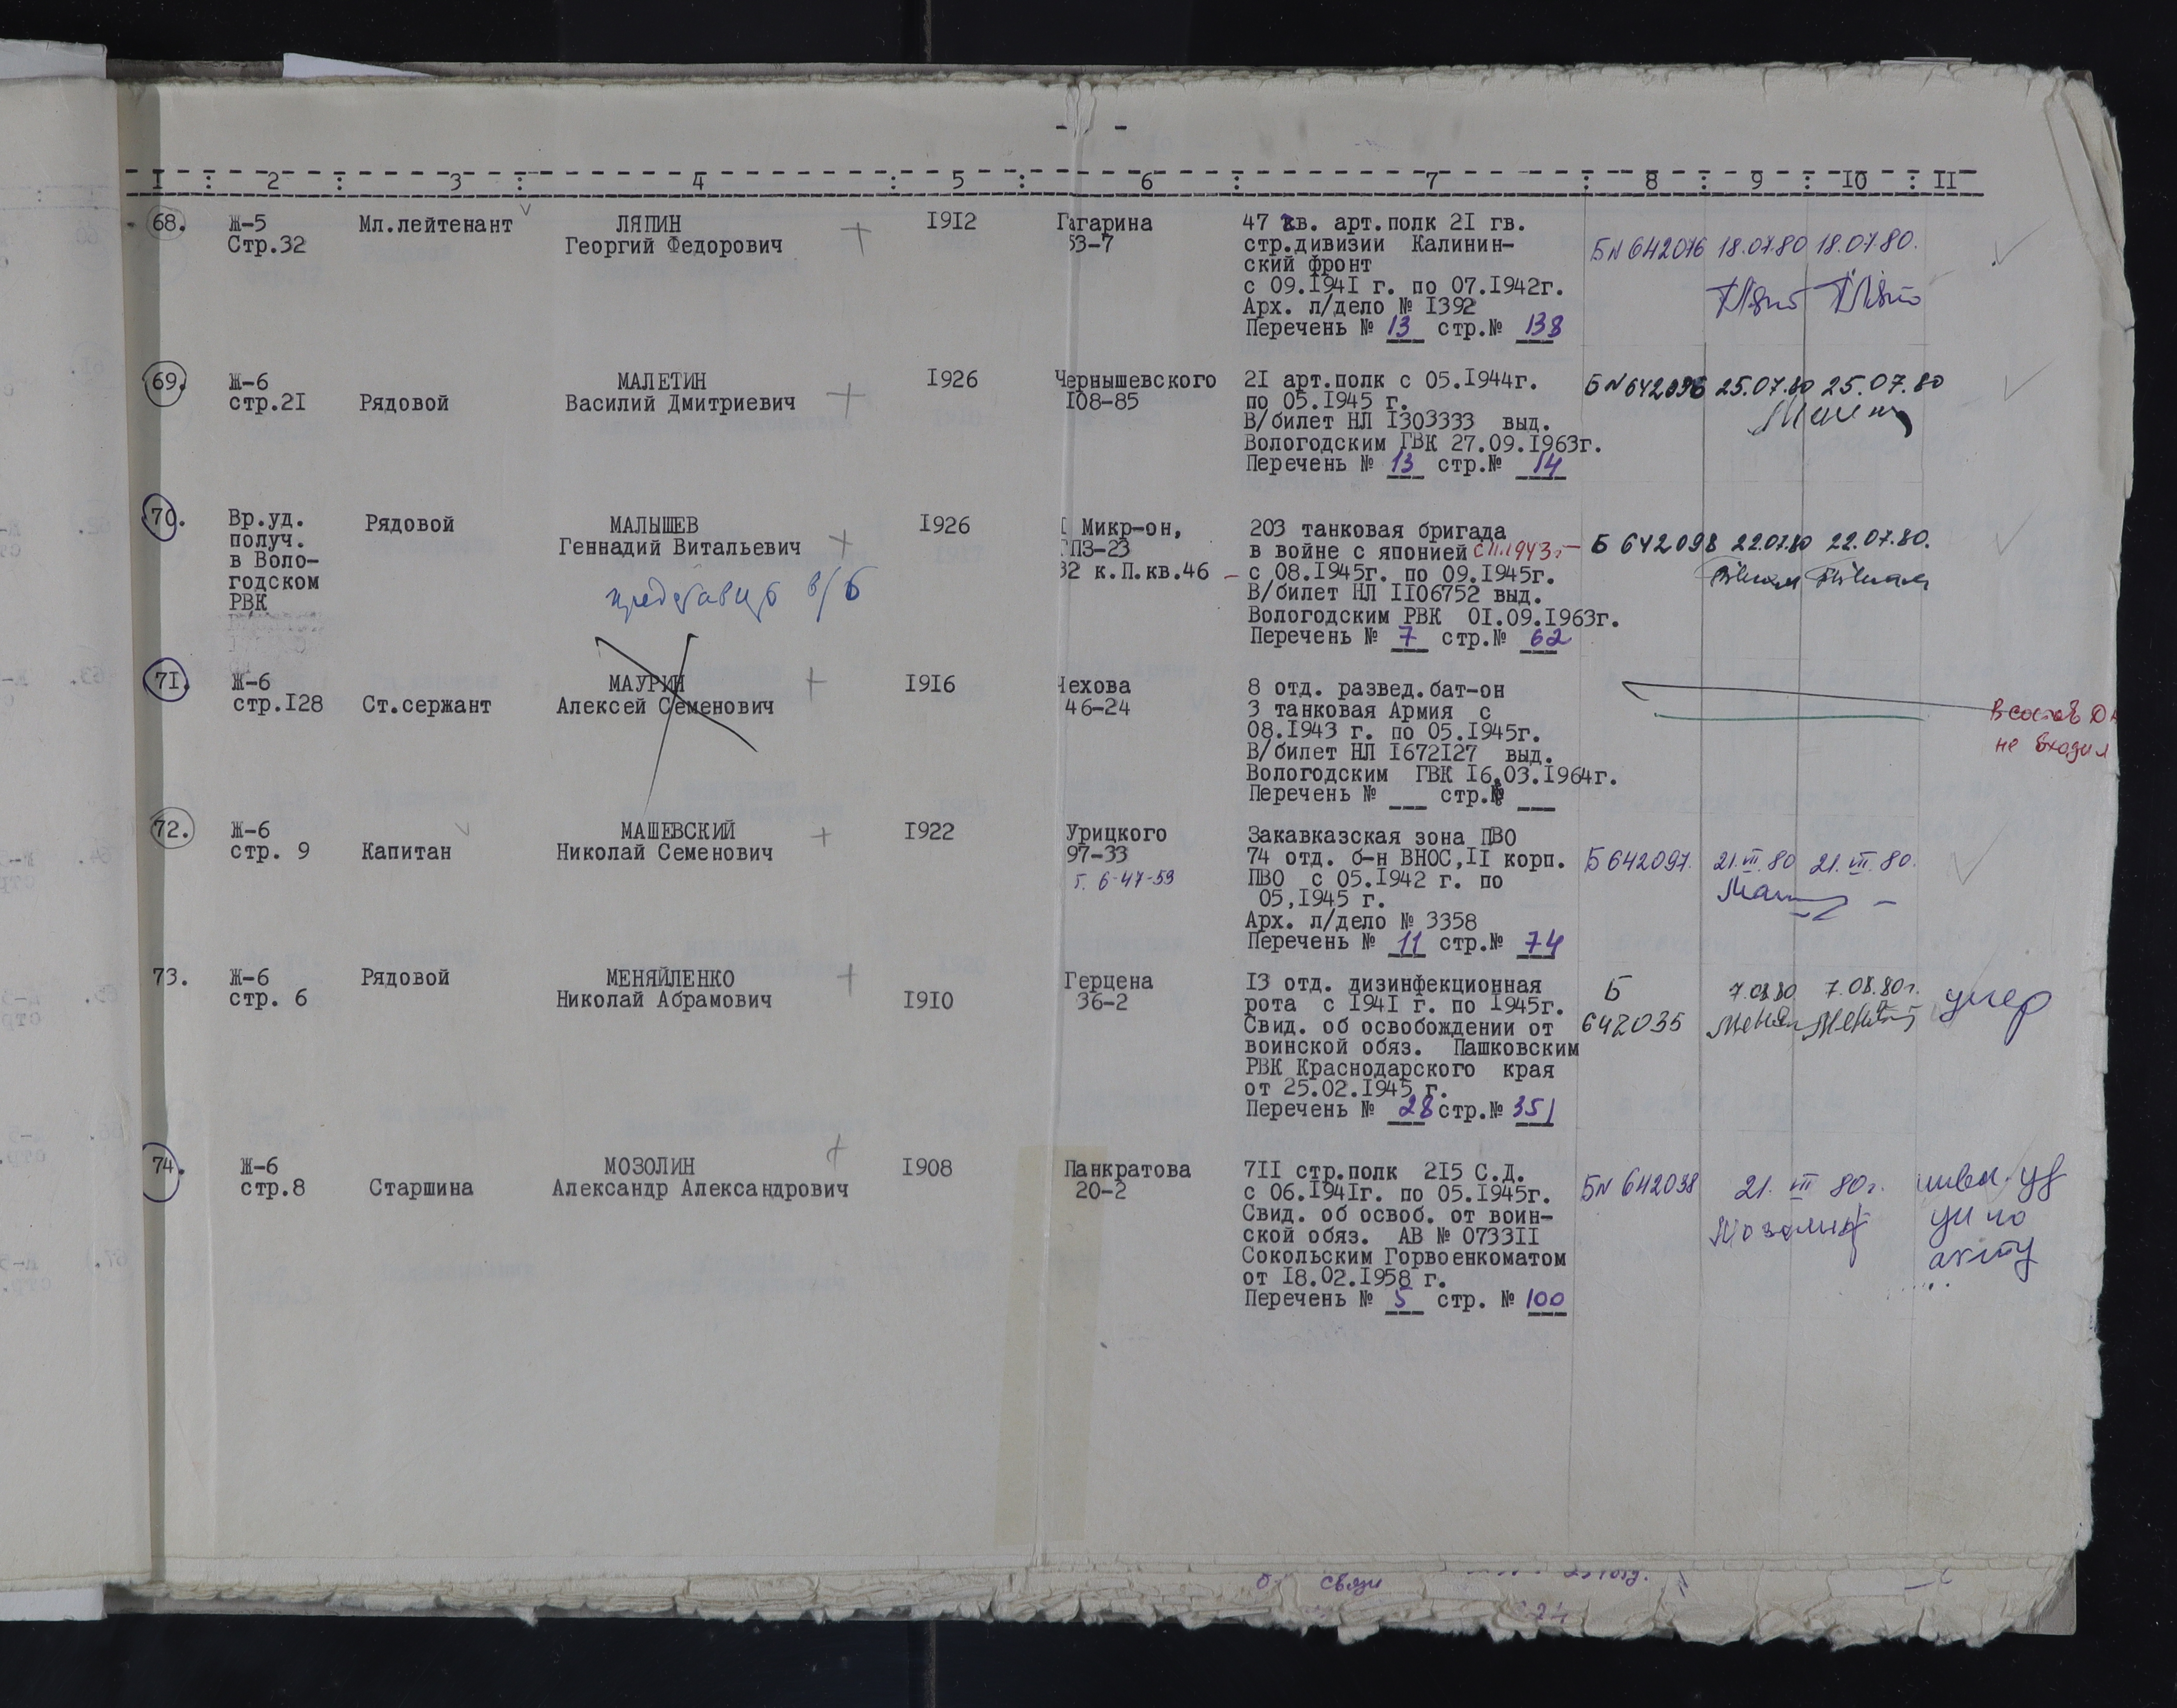 - -
I : 2 : 3 : 4 : 5 : 6 : 7 : 8 : 9 : IO : II
68. Ж-5 Мл.лейтенант ЛЯПИН I9I2 Гагарина 47 гв. арт.полк 2I гв.
Стр.32 Георгий Федорович + 53-7 стр.дивизии Калинин- БN 642076 18.07.80 18.07.80.
ский фронт
с 09.I94I г. по 07.I942г.
Арх. л/дело № I392
Перечень № 13 стр.№ 138
69. Ж-6 МАЛЕТИН I926 Чернышевского 2I арт.полк с 05.I944г. БN 642096 25.07.80 25.07.80
стр.2I Рядовой Василий Дмитриевич + I08-85 по 05.I945 г.
В/билет НЛ I303333 выд.
Вологодским ГВК 27.09.I963г.
Перечень № 13 стр.№ 14
70. Вр.уд. Рядовой МАЛЫШЕВ I926 Микр-он, 203 танковая бригада
получ. Геннадий Витальевич + ГПЗ-23 в войне с японией с 11.1943г- Б 642098 22.07.80 22.07.80.
в Воло- представить в/б 32 к.П.кв.46 – с 08.I945г. по 09.I945г.
годском В/билет НЛ II06752 выд.
РВК Вологодским РВК 0I.09.I963г.
Перечень № 7 стр.№ 62
7I. Ж-6 МАУРИН + I9I6 Чехова 8 отд. развед.бат-он
стр.I28 Ст.сержант Алексей Семенович 46-24 3 танковая Армия с в состав ДА
08.I943 г. по 05.I945г. не входил
В/билет НЛ I672I27 выд.
Вологодским ГВК I6.03.I964г.
Перечень № стр.№
72. Ж-6 МАШЕВСКИЙ + I922 Урицкого Закавказская зона ПВО
стр. 9 Капитан Николай Семенович 97-33 74 отд. б-н ВНОС,II корп. Б 642097. 21.VII.80 21.VII.80.
т. 6-47-59 ПВО с 05.I942 г. по
05,I945 г.
Арх. л/дело № 3358
Перечень № 11 стр.№ 74
73. Ж-6 Рядовой МЕНЯЙЛЕНКО + Герцена I3 отд. дизинфекционная Б 7.08.80 7.08.80г. умер
стр. 6 Николай Абрамович I9I0 36-2 рота с I94I г. по I945г.
Свид. об освобождении от 642035
воинской обяз. Пашковским
РВК Краснодарского края
от 25.02.I945 г.
Перечень № 28 стр.№ 351
74. Ж-6 МОЗОЛИН + I908 Панкратова 7II стр.полк 2I5 С.Д.
стр.8 Старшина Александр Александрович 20-2 с 06.I94Iг. по 05.I945г. БN 642038 21. VII 80г.
Свид. об освоб. от воин-
ской обяз. АВ № 0733II
Сокольским Горвоенкоматом
от I8.02.I958 г.
Перечень № 5 стр. № 100
связи